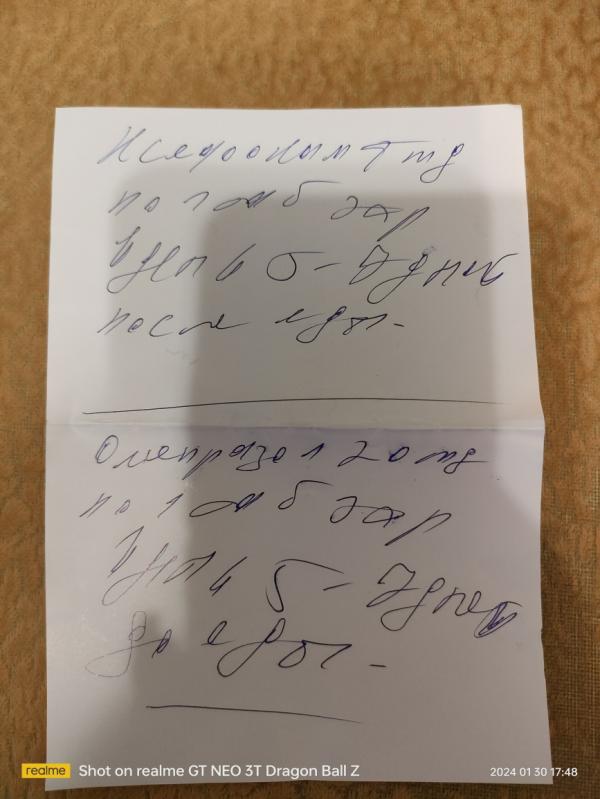 mg
по 1 таб 2хр
в день 5-7 дней
после еды.
Омепразол 20 mg
по 1 таб 2хр
в день 5-7 дней
до еды.
realme Shot on realme GT NEO 3T Dragon Ball Z 2024 01 30 17:48